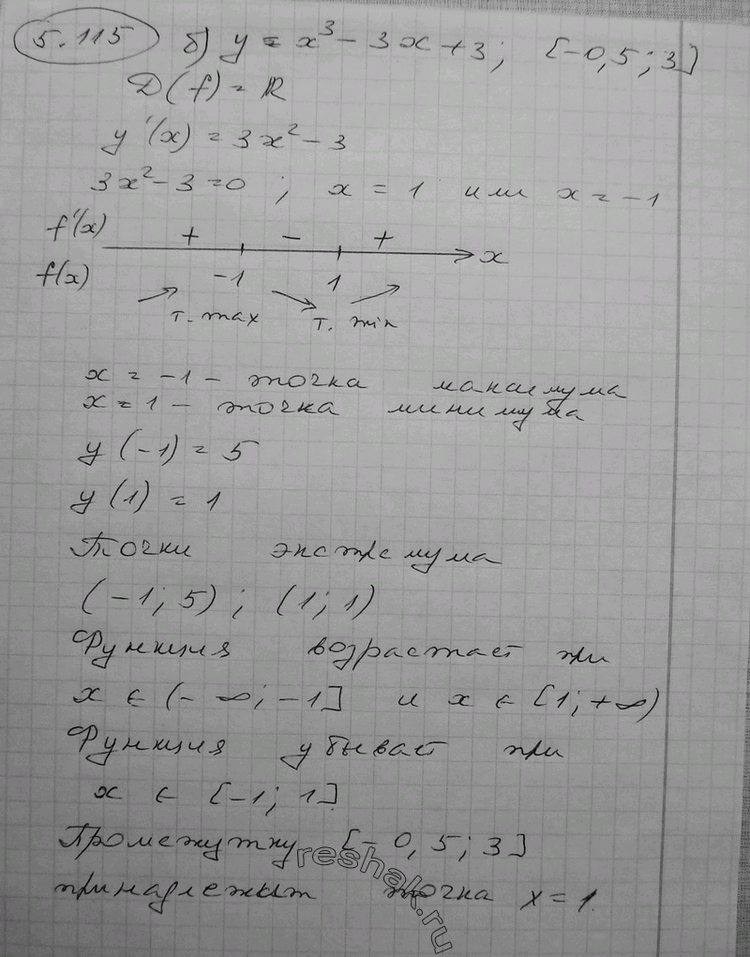 5.115 б) y = x³ - 3x + 3; [-0,5; 3]
D(f) = R
y'(x) = 3x² - 3
3x² - 3 = 0; x = 1 или x = -1
f'(x) + - + x
f(x) -1 1
т. max т. min
x = -1 - точка максимума
x = 1 - точка минимума
y(-1) = 5
y(1) = 1
Точки экстремума
(-1; 5); (1; 1)
Функция возрастает при
x ∈ (-∞; -1] и x ∈ [1; +∞)
Функция убывает при
x ∈ [-1; 1]
Промежутку [-0,5; 3]
принадлежит точка x = 1.
reshak.ru